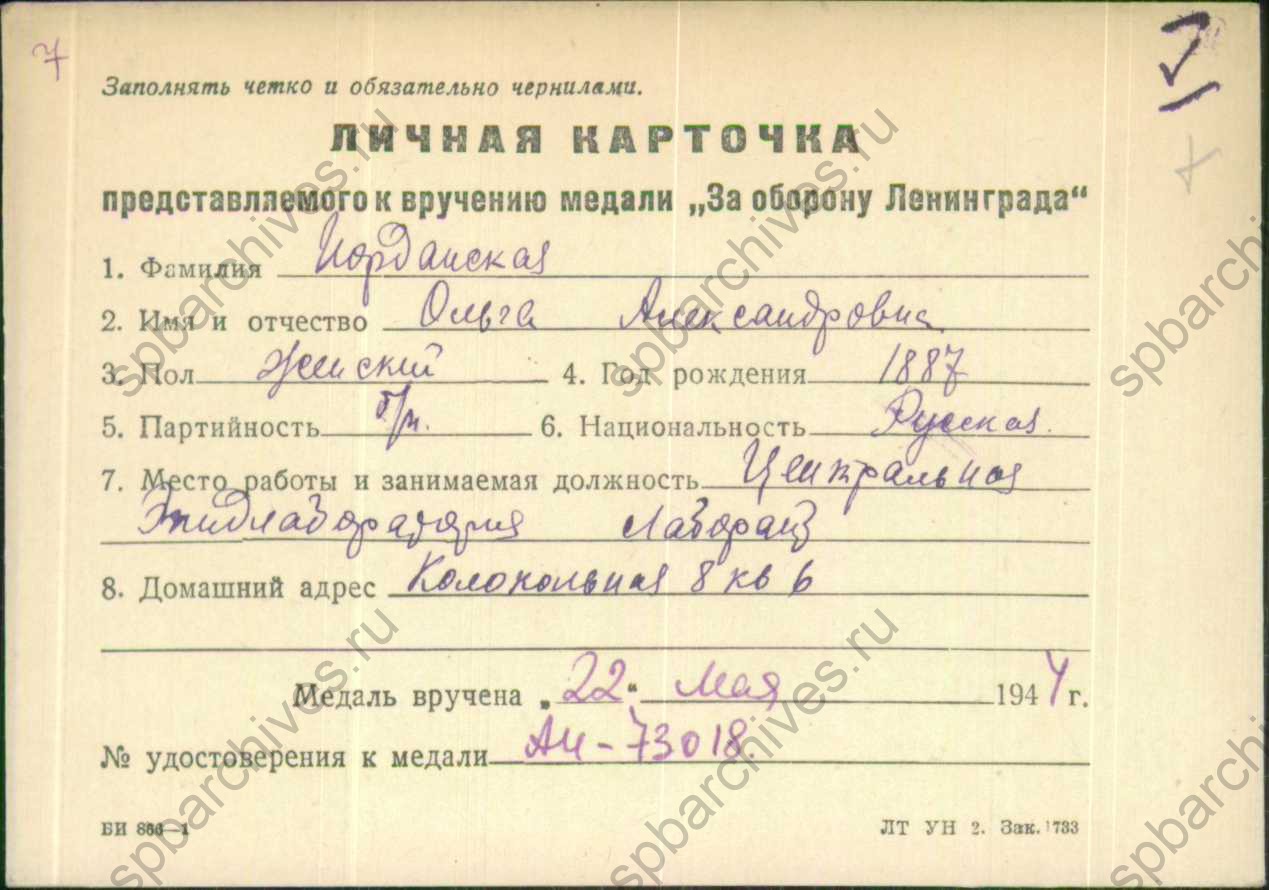 7
Заполнять четко и обязательно чернилами.
ЛИЧНАЯ КАРТОЧКА
представляемого к вручению медали „За оборону Ленинграда“
1. Фамилия Иорданская
2. Имя и отчество Ольга Александровна
3. Пол Женский 4. Год рождения 1887
5. Партийность б/п. 6. Национальность Русская.
7. Место работы и занимаемая должность Центральная
Эпидлаборатория Лаборант
8. Домашний адрес Колокольная 8 кв 6
Медаль вручена „22“ Мая 1944 г.
№ удостоверения к медали АИ-73018.
БИ 866—1 ЛТ УН 2. Зак. 1733
spbarchives.ru